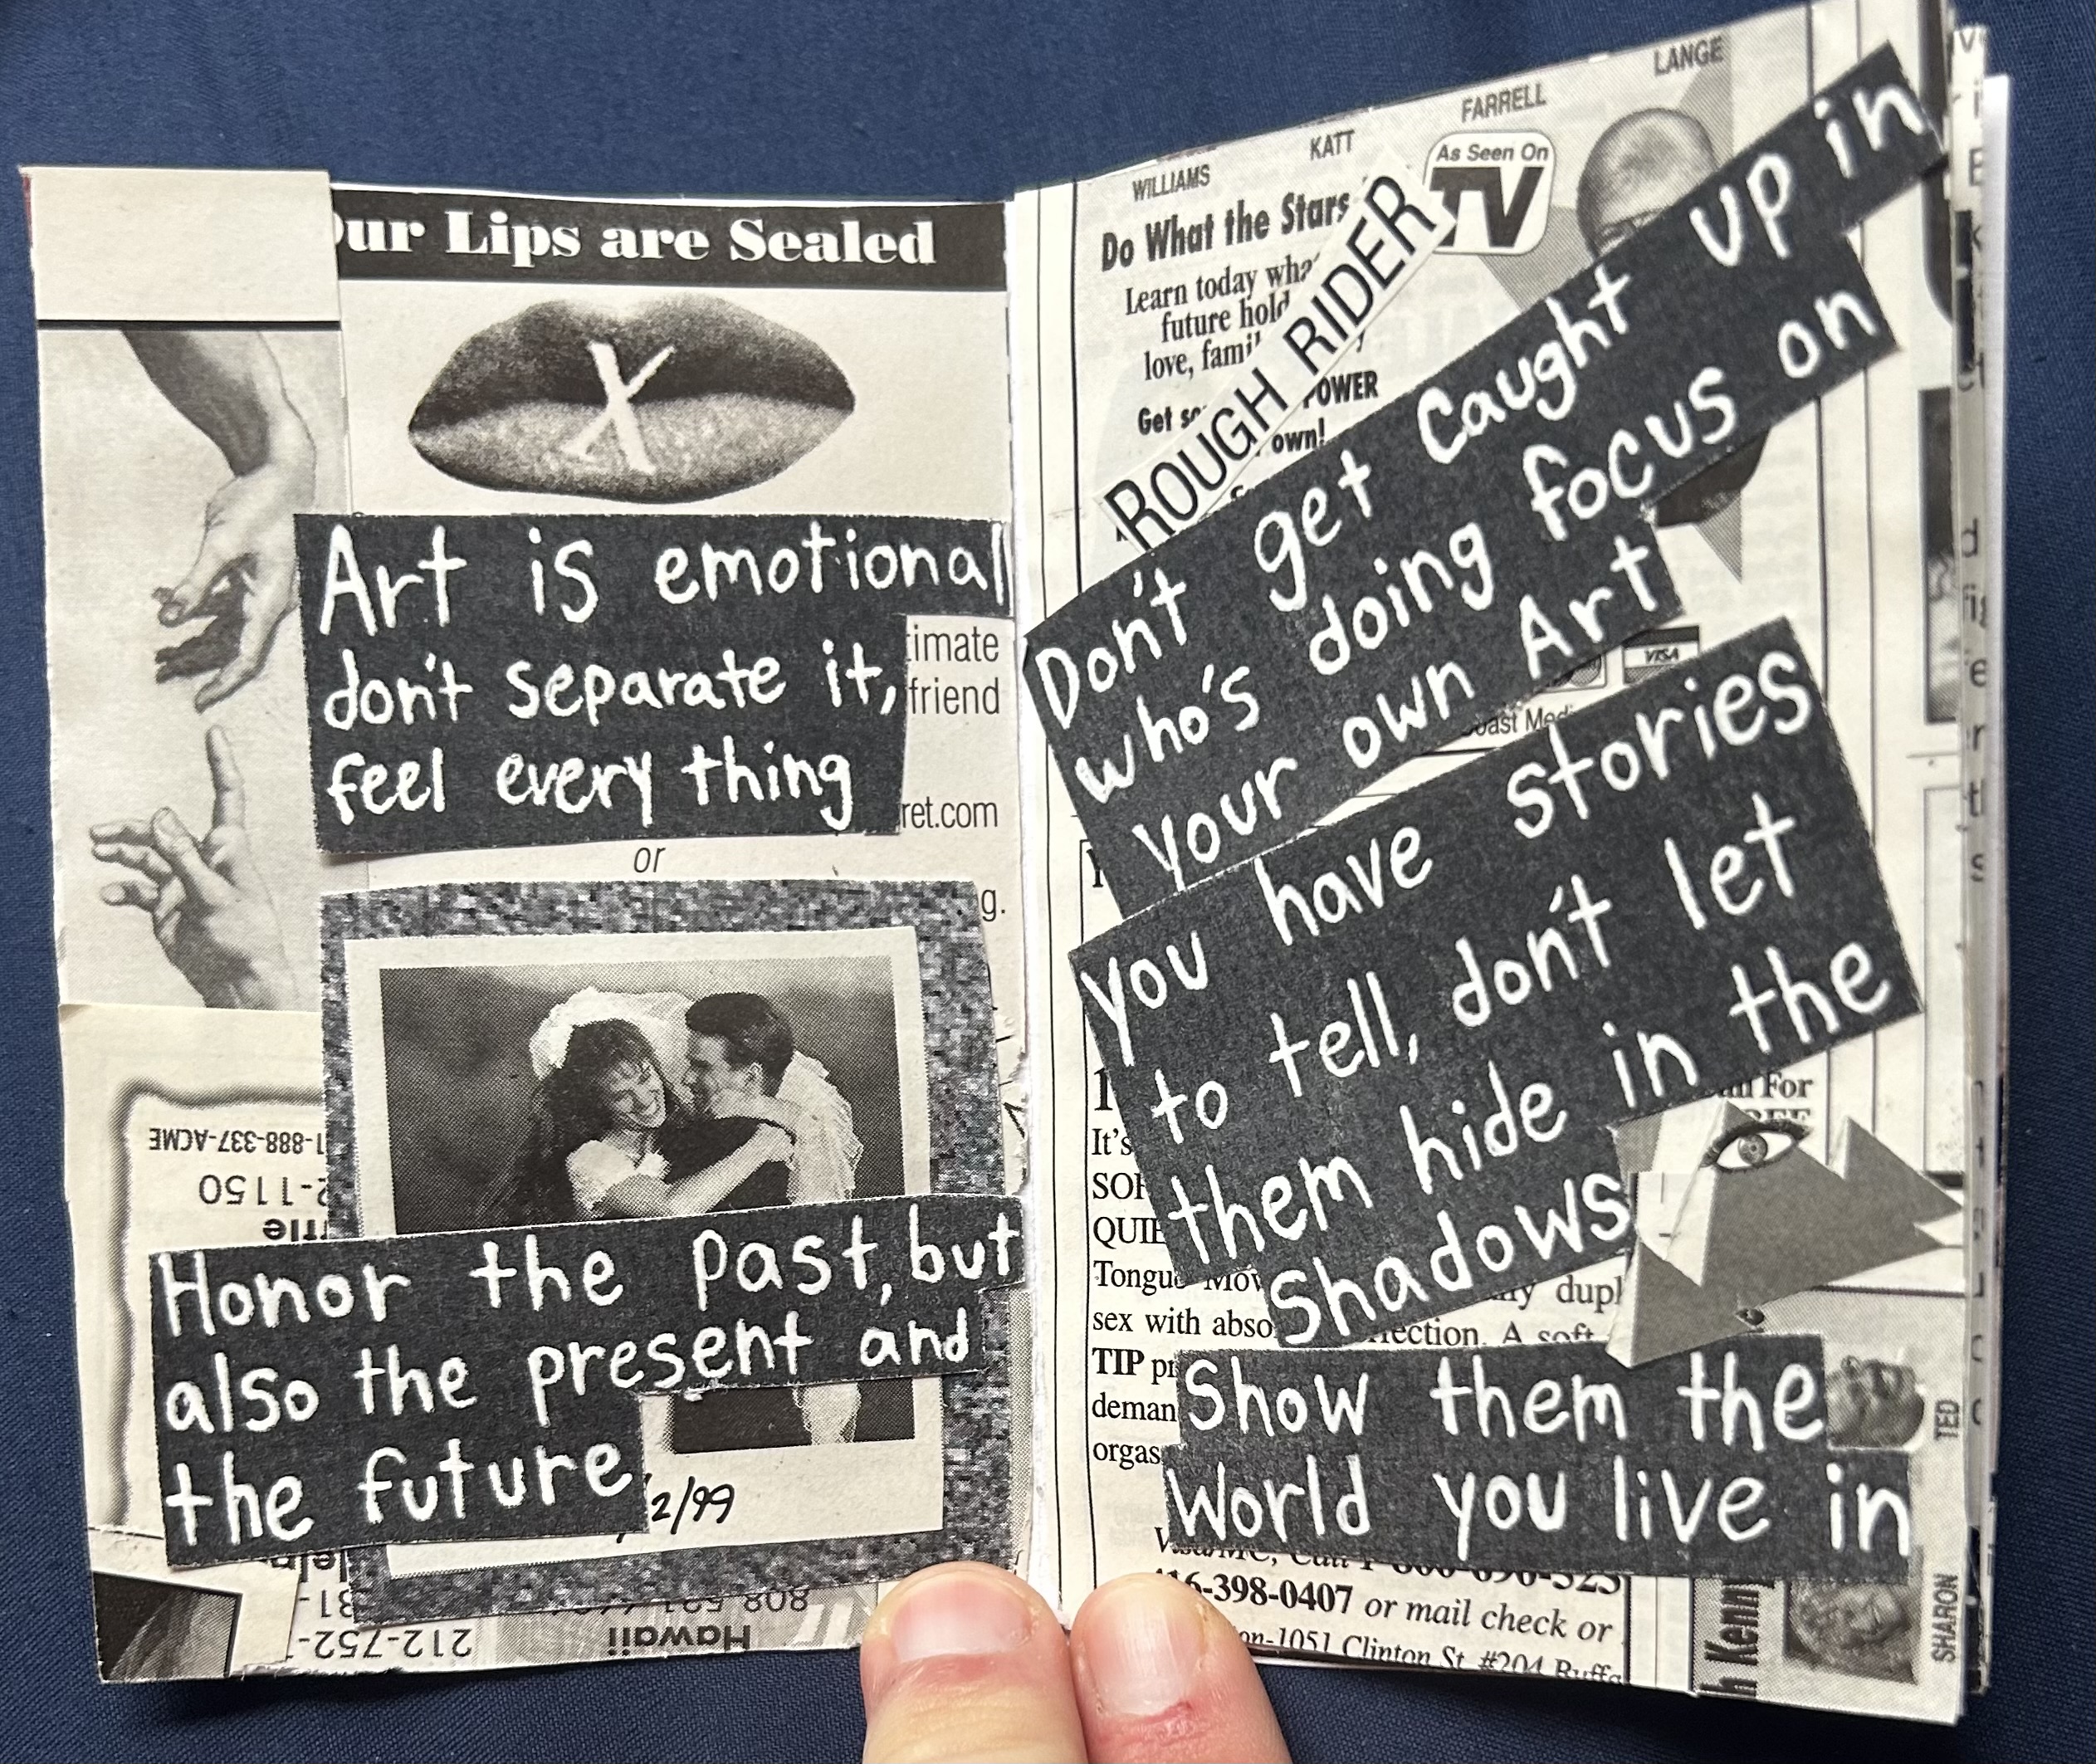 ur Lips are Sealed
X
Art is emotional
don't separate it,
feel every thing
timate
friend
ret.com
or
g.
1-888-337-ACME
2-1150
Honor the past, but
also the present and
the future
2/99
808
Hawaii
212-752-
WILLIAMS
KATT
FARRELL
LANGE
As Seen On
TV
Do What the Stars
Learn today wha
future hold
love, famil
OWER
Get so
own!
ROUGH RIDER
Don't get Caught up in
who's doing focus on
your own Art
VISA
oast Med
You have stories
to tell, don't let
them hide in the
Shadows
For
It's
SOF
QUIE
Tongue Mov
dupl
sex with abso
ection. A soft
TIP pr
deman
orgas
Show them the
World you live in
TED
Visa/MC, Call 1-800-690-523
416-398-0407 or mail check or
on-1051 Clinton St. #204 Buffa
h Kenny
SHARON